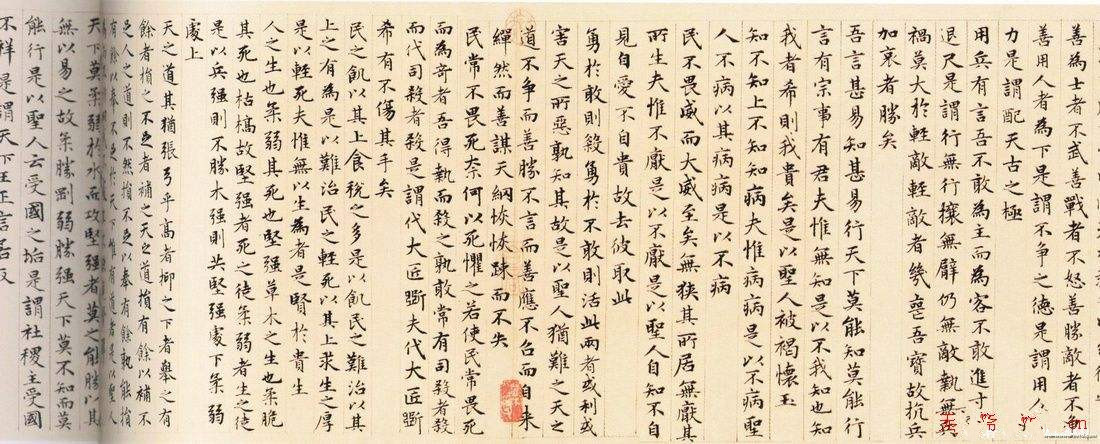 善為士者不武善戰者不怒善勝敵者不
善用人者為下是謂不爭之德是謂用人
力是謂配天古之極
用兵有言吾不敢為主而為客不敢進寸
退尺是謂行無行攘無臂仍無敵執無兵
禍莫大於輕敵輕敵者幾喪吾寶故抗兵
加哀者勝矣
吾言甚易知甚易行天下莫能知莫能行
言有宗事有君夫惟無知是以不我知也知
我者希則我貴矣是以聖人被褐懷玉
知不知上不知知病夫惟病病是以不病聖
人不病以其病病是以不病
民不畏威而大威至矣無狹其所居無厭其
所生夫惟不厭是以不厭是以聖人自知不自
見自愛不自貴故去彼取此
勇於敢則殺勇於不敢則活此兩者或利或
害天之所惡孰知其故是以聖人猶難之天之
道不争而善勝不言而善應不召而自来
繟然而善謀天網恢恢踈而不失
民常不畏死奈何以死懼之若使民常畏死
而為奇者吾得執而殺之孰敢常有司殺者殺
而代司殺者殺是謂代大匠斲夫代大匠斲
希有不傷其手矣
民之飢以其上食稅之多是以飢民之難治以其
上之有為是以難治民之輕死以其上求生之厚
是以輕死夫惟無以生為者是賢於貴生
人之生也柔弱其死也堅强草木之生也柔脆
其死也枯槁故堅强者死之徒柔弱者生之徒
是以兵强則不勝木强則共堅强處下柔弱
處上
天之道其猶張弓乎高者抑之下者舉之有
餘者損之不足者補之天之道損有餘以補不
足人之道則不然損不足以奉有餘孰能損
有餘以奉不足
天下莫柔弱於水而攻堅强者莫之能勝以其
無以易之故柔勝剛弱勝强天下莫不知而莫
能行是以聖人云受國之垢是謂社稷主受國
不祥是謂天下王正言若反